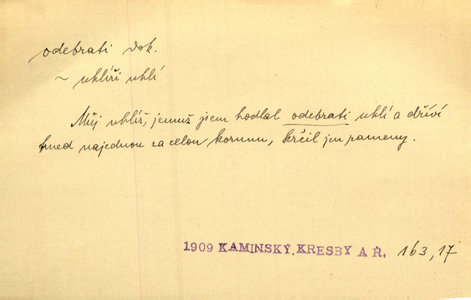 odebrati dok.
~ uhlíři uhlí
Můj uhlíř, jemuž jsem hodlal odebrati uhlí a dříví
hned najednou za celou korunu, krčil jen rameny.
1909 KAMINSKÝ, KRESBY A Ř. 163,17